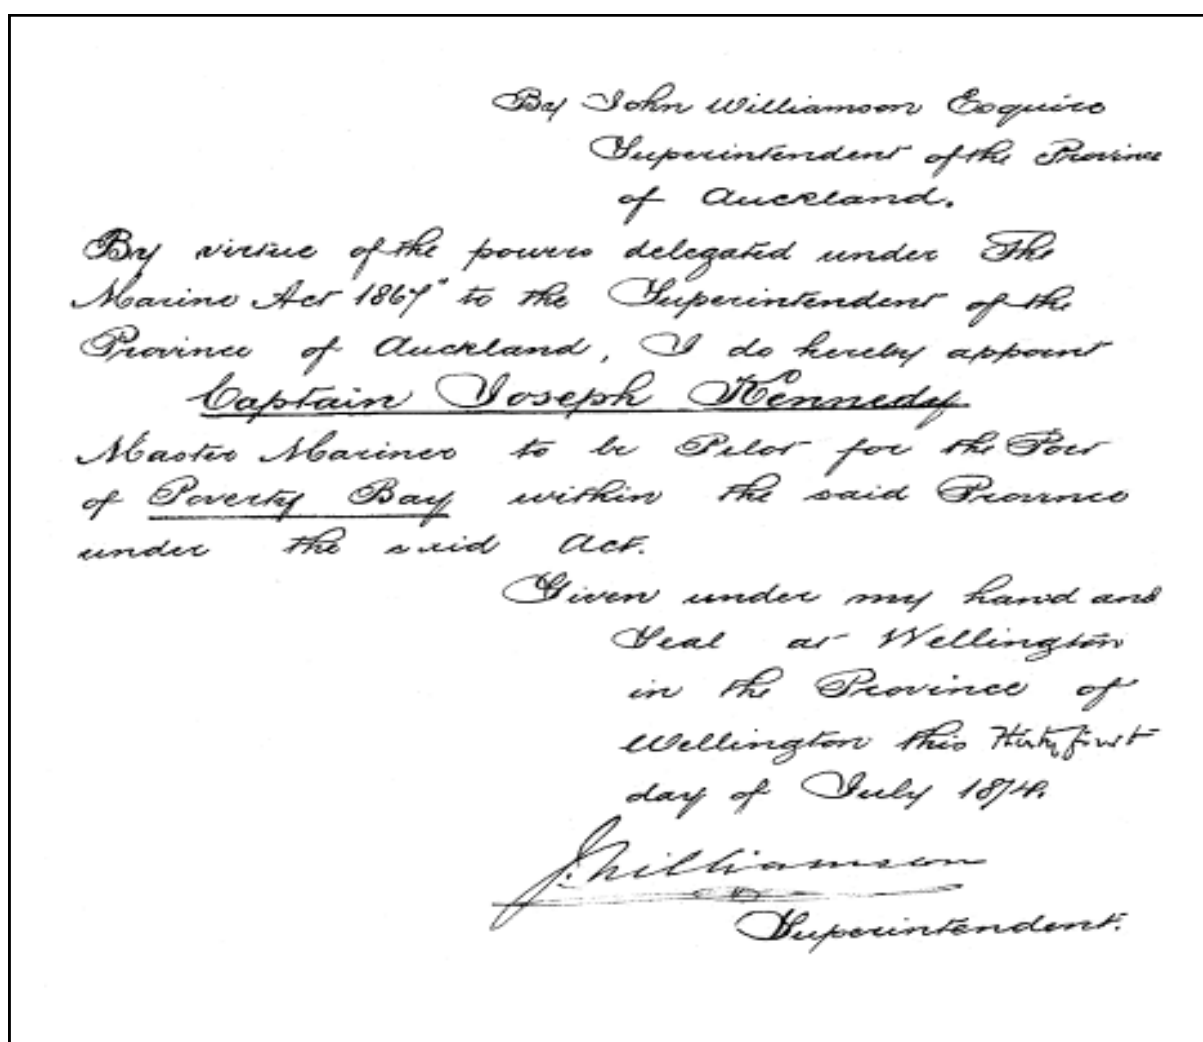 By John Williamson Esquire
Superintendent of the Province
of Auckland.
By virtue of the powers delegated under The
Marine Act 1867" to the Superintendent of the
Province of Auckland, I do hereby appoint
Captain Joseph Kennedy
Master Mariner to be Pilot for the Port
of Poverty Bay within the said Province
under the said Act.
Given under my hand and
Seal at Wellington
in the Province of
Wellington this Thirty first
day of July 1874.
J. Williamson
Superintendent.